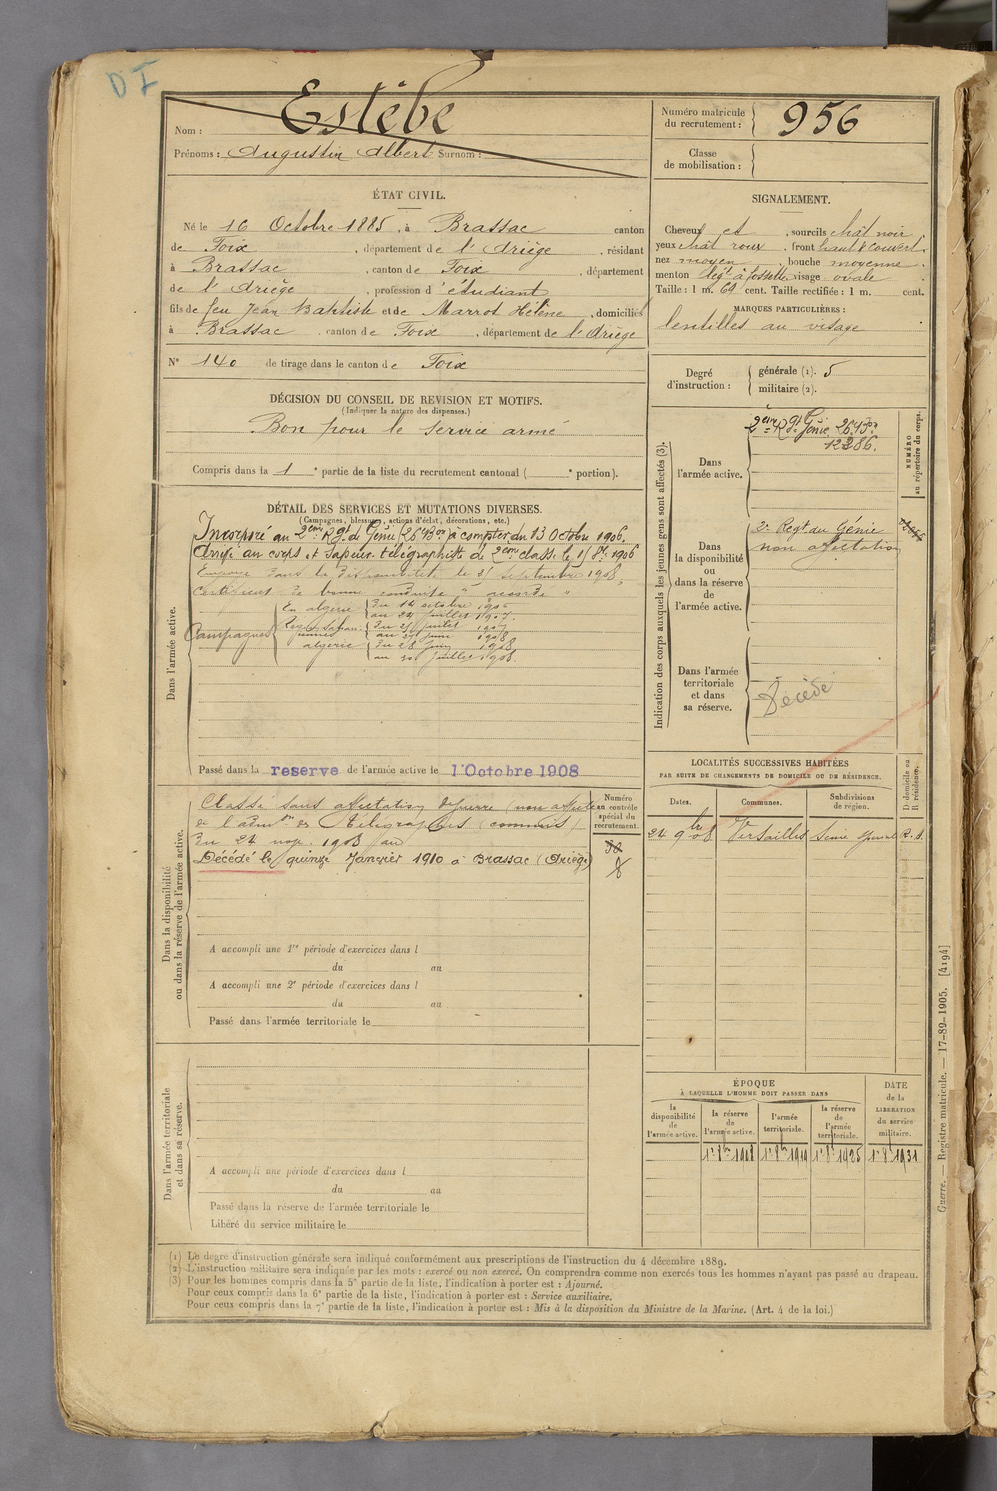 D I
Nom : Estèbe
Prénoms : Augustin Albert Surnom :
Numéro matricule
du recrutement : 956
Classe
de mobilisation :
ÉTAT CIVIL.
Né le 16 Octobre 1885, à Brassac canton
de Foix, département de l'Ariège, résidant
à Brassac, canton de Foix, département
de l'Ariège, profession d'étudiant
fils de feu Jean Baptiste et de Marrot Hélène, domiciliés
à Brassac, canton de Foix, département de l'Ariège
N° 140 de tirage dans le canton de Foix
SIGNALEMENT.
Cheveux et, sourcils chât noir
yeux chât roux, front haut & couvert,
nez moyen, bouche moyenne
menton légt à fossette, visage ovale
Taille : 1 m. 69 cent. Taille rectifiée : 1 m. cent.
MARQUES PARTICULIÈRES :
lentilles au visage
Degré
d'instruction :
générale (1). 5
militaire (2).
DÉCISION DU CONSEIL DE REVISION ET MOTIFS.
(Indiquer la nature des dispenses.)
Bon pour le service armé
Compris dans la 1e partie de la liste du recrutement cantonal ( e portion).
DÉTAIL DES SERVICES ET MUTATIONS DIVERSES.
(Campagnes, blessures, actions d'éclat, décorations, etc.)
Dans l'armée active.
Incorporé au 2ème Rgt de Génie 26e Bon à compter du 13 Octobre 1906.
Arrivé au corps et sapeur télégraphiste de 2ème classe le 1906
Envoyé dans la disponibilité le septembre 1908,
Certificat de bonne conduite " accordé "
Campagnes
En algérie du 14 octobre
au 24 juillet 1907.
du juillet 1907
au juin 1908
algérie du 28 juin 1908
au juillet 1908.
Passé dans la reserve de l'armée active le 1 Octobre 1908
Indication des corps auxquels les jeunes gens sont affectés (3).
NUMÉRO
au répertoire du corps.
Dans
l'armée active.
2ème Rgt Génie 26e Bon
12286.
Dans
la disponibilité
ou
dans la réserve
de
l'armée active.
2e Regt du Génie
non affectation
Dans l'armée
territoriale
et dans
sa réserve.
Décédé
Dans la disponibilité
ou dans la réserve de l'armée active.
Classé sans affectation de guerre (non affecté
de l'admon des Télégraphes (commis)
du 24 nov. 1908 au
Décédé le quinze Janvier 1910 à Brassac (Ariège)
Numéro
au contrôle
spécial du
recrutement.
A accompli une 1re période d'exercices dans l
du au
A accompli une 2e période d'exercices dans l
du au
Passé dans l'armée territoriale le
LOCALITÉS SUCCESSIVES HABITÉES
PAR SUITE DE CHANGEMENTS DE DOMICILE OU DE RÉSIDENCE.
D. domicile ou
R. résidence.
Dates.
Communes.
Subdivisions
de région.
24 9bre 08 Versailles Seine R.
Dans l'armée territoriale
et dans sa réserve.
A accompli une période d'exercices dans l
du au
Passé dans la réserve de l'armée territoriale le
Libéré du service militaire le
ÉPOQUE
À LAQUELLE L'HOMME DOIT PASSER DANS
la
disponibilité
de
l'armée active.
la réserve
de
l'armée active.
l'armée
territoriale.
la réserve
de
l'armée
territoriale.
DATE
de la
LIBÉRATION
du service
militaire.
1er 8bre 1908 1er 8bre 1919 1er 8bre 1925 1er 8bre 1931
(1) Le degré d'instruction générale sera indiqué conformément aux prescriptions de l'instruction du 4 décembre 1889.
(2) L'instruction militaire sera indiquée par les mots : exercé ou non exercé. On comprendra comme non exercés tous les hommes n'ayant pas passé au drapeau.
(3) Pour les hommes compris dans la 5e partie de la liste, l'indication à porter est : Ajourné.
Pour ceux compris dans la 6e partie de la liste, l'indication à porter est : Service auxiliaire.
Pour ceux compris dans la 7e partie de la liste, l'indication à porter est : Mis à la disposition du Ministre de la Marine. (Art. 4 de la loi.)
Guerre. — Registre matricule. — 17-89-1905. [4194]